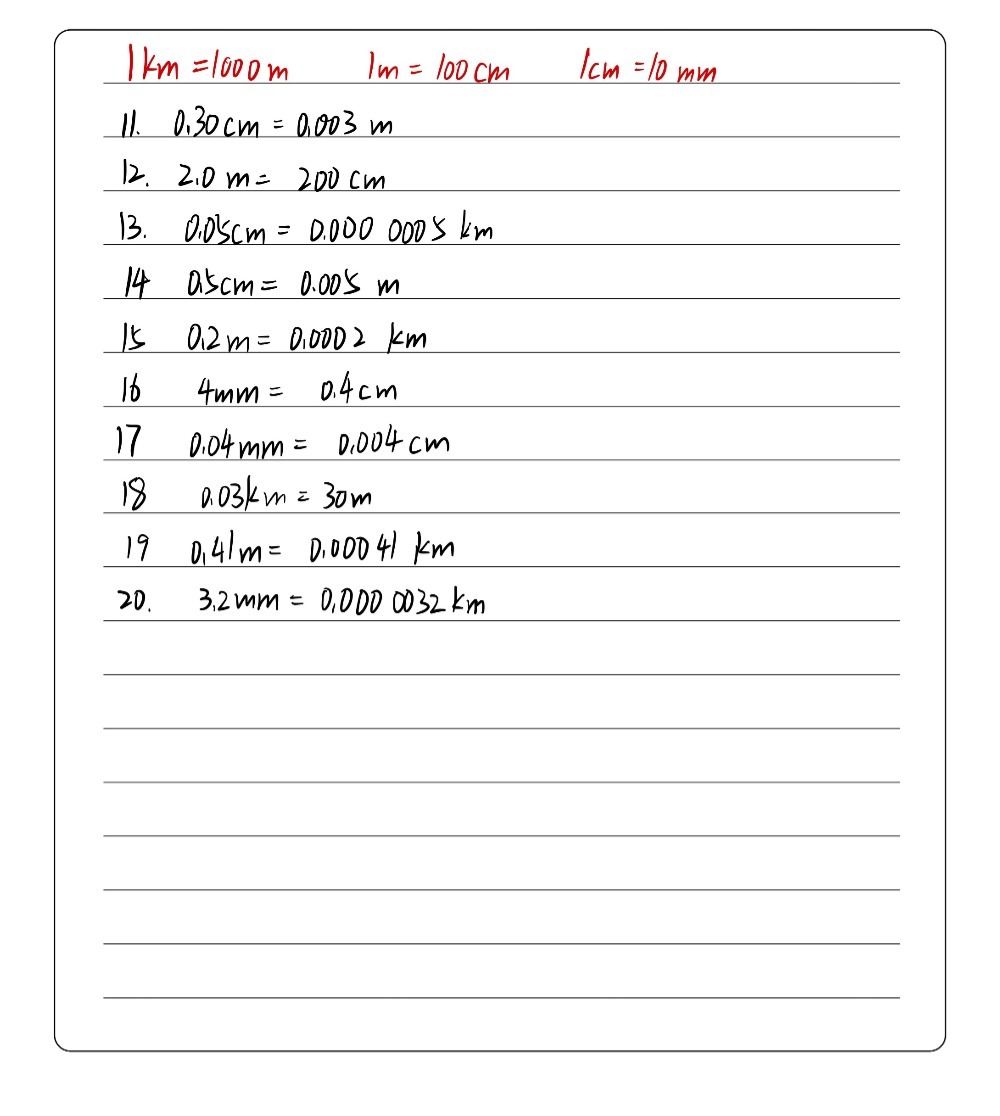 1km =1000m 1m = 100cm 1cm =10 mm
11. 0.30cm = 0.003 m
12. 2.0 m = 200 cm
13. 0.05cm = 0.000 0005 km
14 0.5cm = 0.005 m
15 0.2m = 0.0002 km
16 4mm = 0.4cm
17 0.04mm = 0.004cm
18 0.03km = 30m
19 0.41m = 0.00041 km
20. 3.2mm = 0.000 0032km